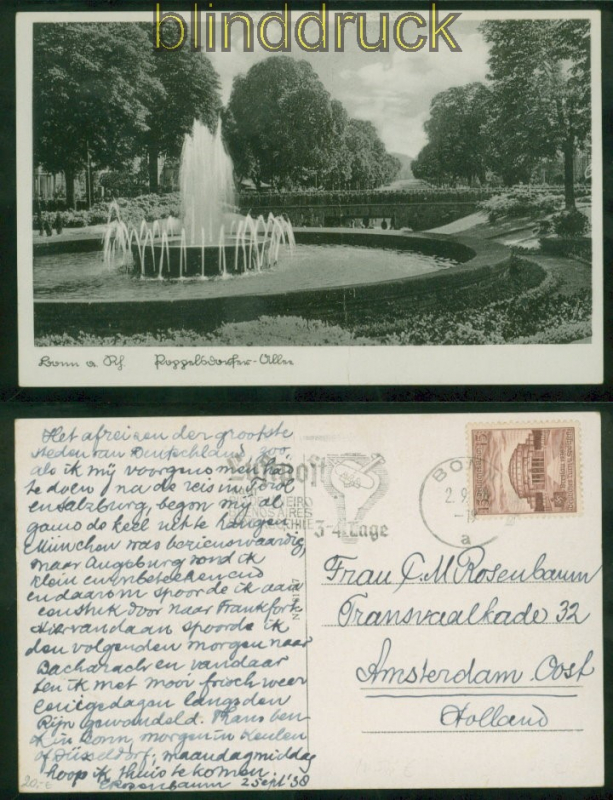 blinddruck
Bonn a. Rh. Poppelsdorfer-Allee
Het afreizen der grootste
steden van Deutschland, zoo
als ik mij voorgenomen had
te doen, na de reis in Tirol
en Salzburg, begon mij al
gauw de keel uit te hangen
München was bezienswaardig,
maar Augsburg vond ik
klein en onbeteekenend
en daarom spoorde ik aan
een stuk door naar Frankfort.
Hiervandaan spoorde ik
den volgenden morgen naar
Bacharach en vandaar
ben ik met mooi frisch weer
eenige dagen langs den
Rijn gewandeld. Thans ben
ik in Bonn, morgen in Keulen
of Düsseldorf; maandagmiddag
hoop ik thuis te komen.
Rosenbaum 2 Sept '38
20,-€
Luftpost
RIO DE JANEIRO
BUENOS AIRES
CHILE
3-4 Tage
BONN
2.9.38
a
Frau C. M. Rosenbaum
Transvaalkade 32
Amsterdam Oost
Holland